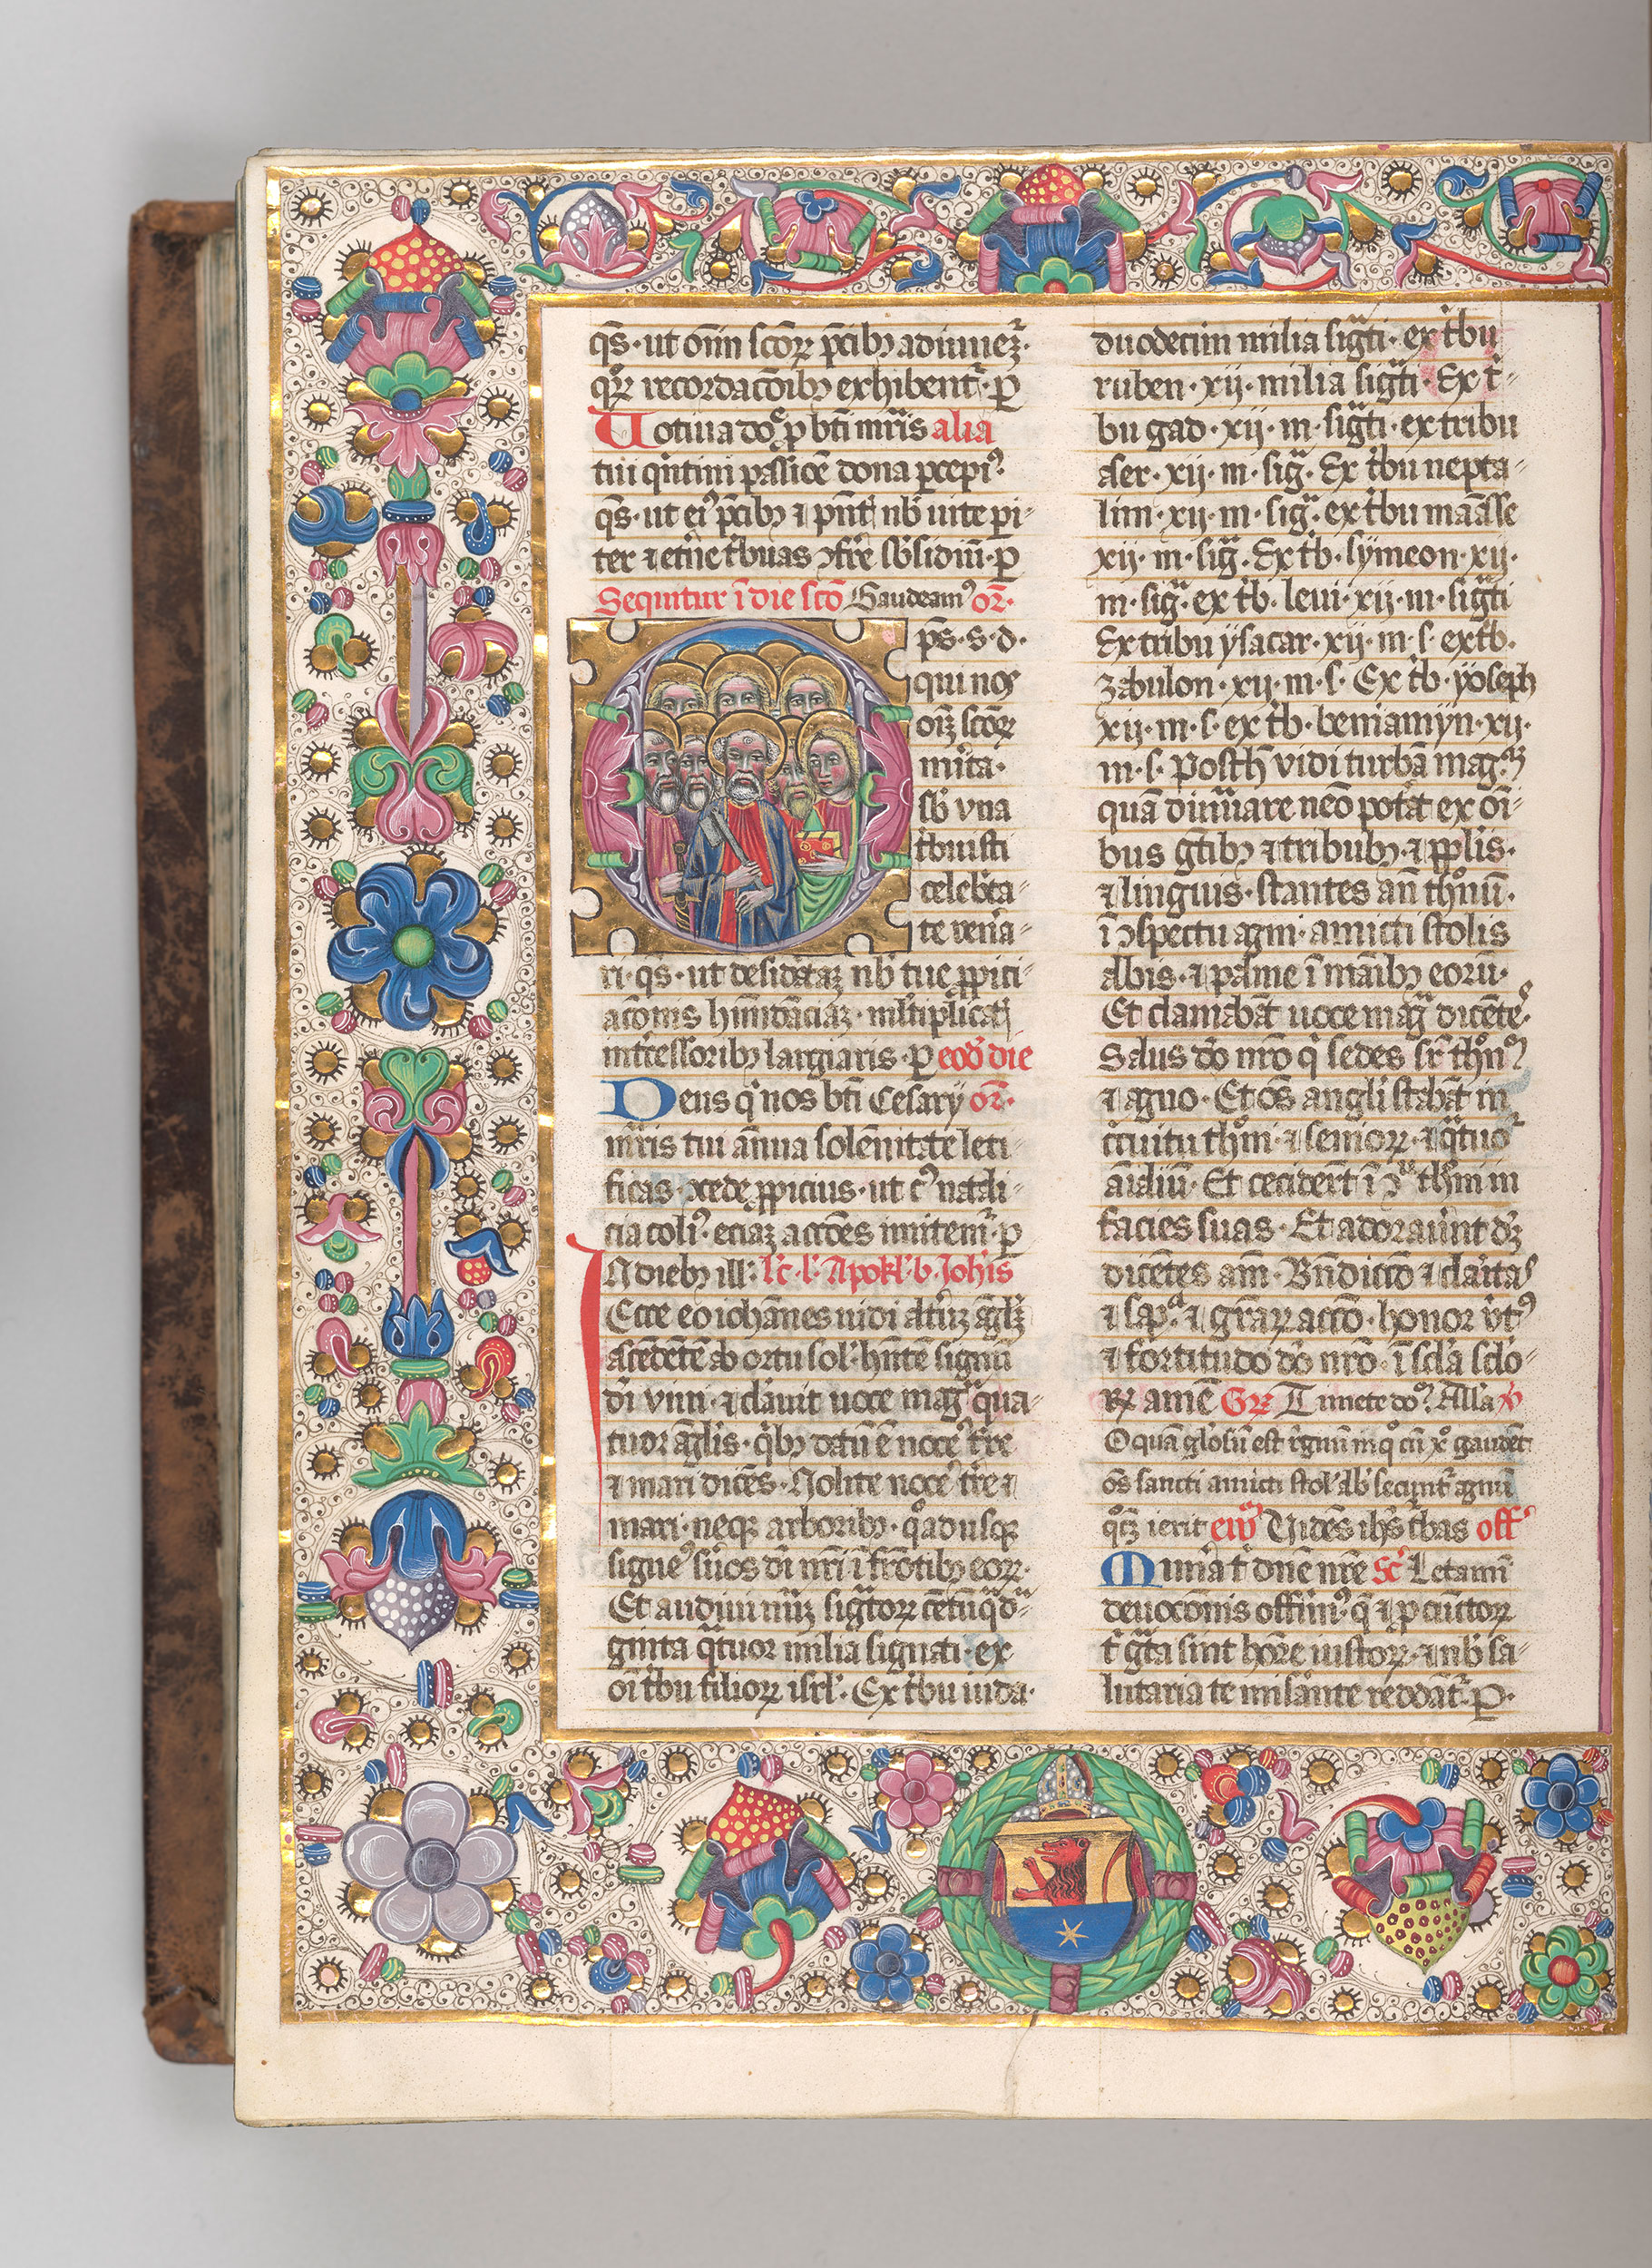 qs· ut oim scoꝝ pcibꝫ adiuuemꝛ·
qꝛ recordacoibꝫ exhibent· ꝑ
Uotiua do ꝑ bti mris alia
tui qntim passioe dona pcepi
qs· ut ei pcibꝫ ⁊ pnt nb uite pi-
ter ⁊ etne tbuas ꝯfre sbsidiu· ꝑ
Sequitur i die sco Gaudeam or·
ps· s· d·
qui nos
oim scoꝝ
mita·
sb vna
tbuisti
celebta-
te vena-
ri· qs· ut desidata nb tue ppici-
acois habudacia· mltiplicat
intcessoribꝫ largiaris· ꝑ eod die
Deus q nos bti Cesarÿ or·
mris tui annua solenitate leti-
ficas· ꝯcede ppicius· ut c natali-
cia coli· ecia accoes imitem· ꝑ
In diebꝫ ill: lc· l· Apokl· b· Johis
Ecce eo iohanes uidi altm agl
ascedete ab ortu sol· hnte signu
di viui· ⁊ clauit uoce mag qua-
tuor aglis· qbꝫ datu e noce tre
⁊ mari dices· Nolite noce tre ⁊
mari· neqꝫ arboribꝫ· qadusqꝫ
signe suos di nri i frotibꝫ eoꝝ·
Et audiui nu sigtoꝝ cetu qd-
ginta qtuor milia signati· ex
oi tbu filioꝝ isrl· Ex tbu iuda·
duodecim milia sigti· ex tbu
ruben· xij· milia sigti· Ex t-
bu gad· xij· m· sigti· ex tribu
aser· xij· m· sig· Ex tbu nepta-
lim· xij· m· sig· ex tbu maasse
xij· m· sig· Ex tb· sÿmeon· xij·
m· sig· ex tb· leui· xij· m· sigti
Ex tribu ÿsacar· xij· m· s· ex tb·
zabulon· xij· m· s· Ex tb· ÿoseph
xij· m· s· ex tb· beniamÿn· xij·
m· s· Posth vidi turba mag
qua dinuare neo potat ex oi-
bus gtibꝫ ⁊ tribubꝫ· ⁊ pplis·
⁊ linguis· stantes an thnu·
i ꝯspectu agni· amicti stolis
albis· ⁊ palme i maibꝫ eoru·
Et clamabat uoce mag dicete·
Salus do nro q sedes sr thn
⁊ agno· Et os angli stabat in
circuitu thni· ⁊ senioꝝ· ⁊ qtuor
aialiu· Et cecidert i ꝯ thni in
facies suas· Et adorauint dm
dicetes am· Bndicco ⁊ claita
⁊ sap· ⁊ graꝝ acco· honor vt
⁊ fortitudo do nro· i scla sclo-
ꝝ ame Gr Timete do Alla v
O qua glosu est rgnu in q cu xo gaudet
os sancti amicti stol alb secunt agnu
qocuqꝫ ierit ew Vides ihs tbas off
Muna t dne nre Sc Letami
deuocois offim· q ⁊ ꝑ cunctoꝝ
t gta sint hore iustoꝝ· ⁊ nb sa-
lutaria te misante reddat· ꝑ·